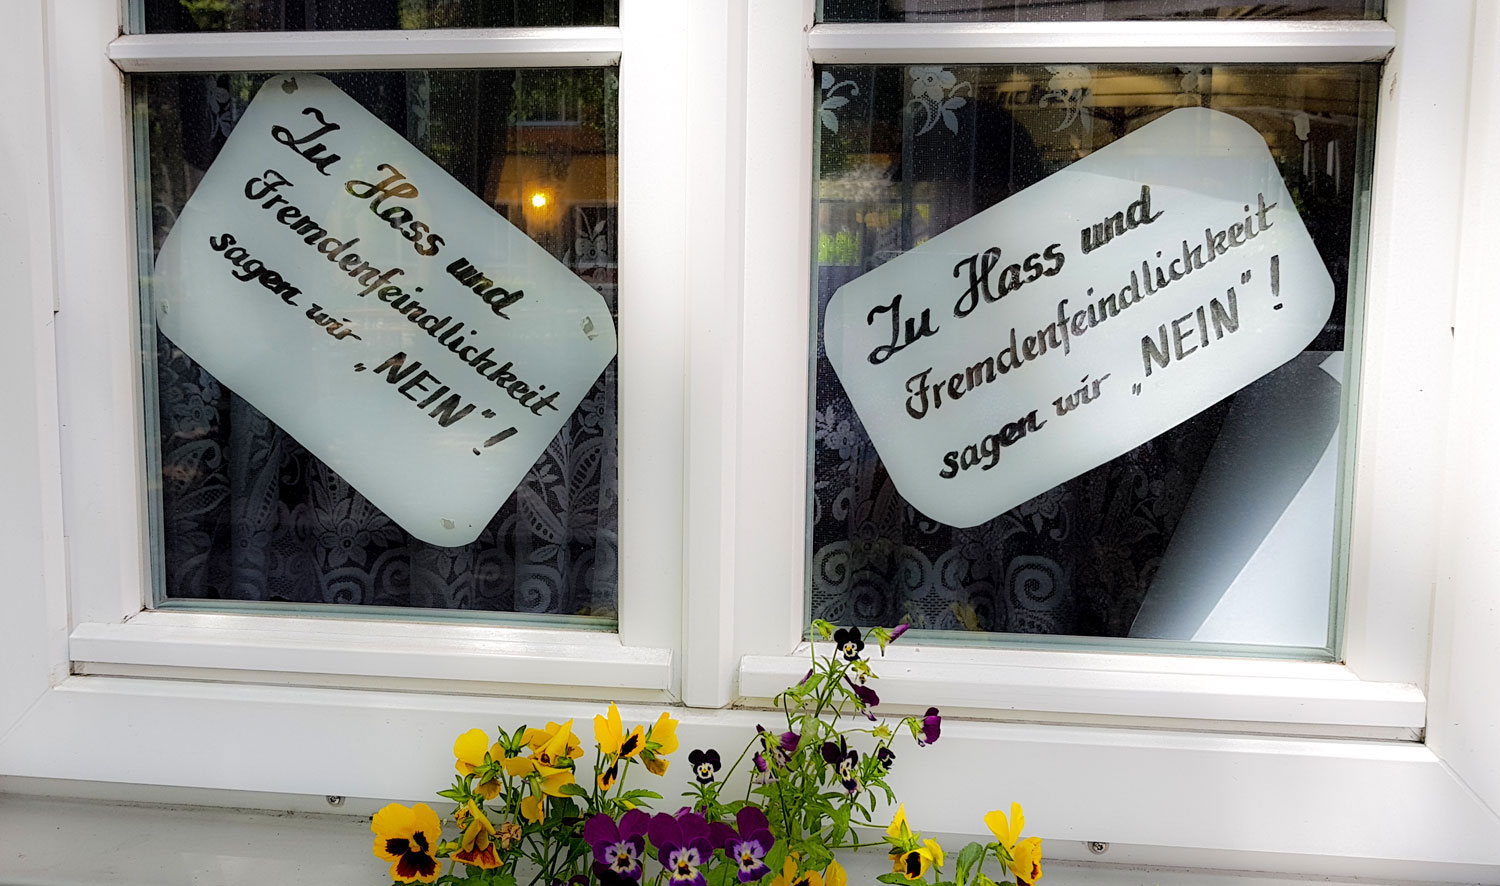 Zu Hass und
Fremdenfeindlichkeit
sagen wir „NEIN“!
Zu Hass und
Fremdenfeindlichkeit
sagen wir „NEIN“!